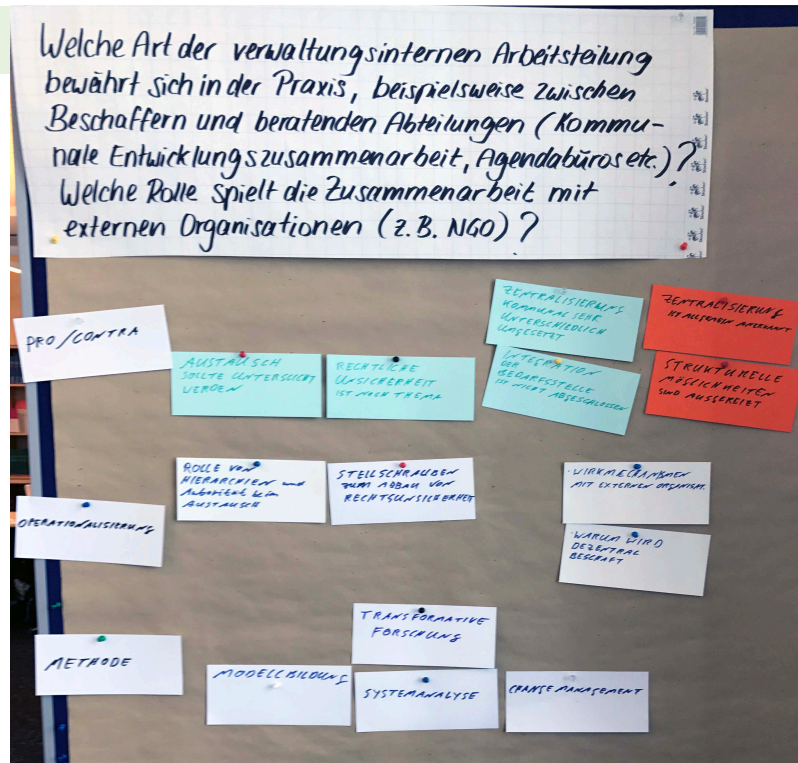 Welche Art der verwaltungsinternen Arbeitsteilung
bewährt sich in der Praxis, beispielsweise zwischen
Beschaffern und beratenden Abteilungen (Kommu-
nale Entwicklungszusammenarbeit, Agendabüros etc.)?
Welche Rolle spielt die Zusammenarbeit mit
externen Organisationen (z.B. NGO)?
PRO/CONTRA
AUSTAUSCH
SOLLTE UNTERSUCHT
WERDEN
RECHTLICHE
UNSICHERHEIT
IST NOCH THEMA
ZENTRALISIERUNG
KOMMUNAL SEHR
UNTERSCHIEDLICH
UMGESETZT
INTEGRATION
DER
BEDARFSSTELLE
IST NICHT ABGESCHLOSSEN
ZENTRALISIERUNG
IST ALLGEMEIN ANERKANNT
STRUKTURELLE
MÖGLICHKEITEN
SIND AUSGEREIZT
OPERATIONALISIERUNG
ROLLE VON
HIERARCHIEN und
Autorität beim
AUSTAUSCH
STELLSCHRAUBEN
ZUM ABBAU VON
RECHTSUNSICHERHEIT
·WIRKMECHANISMEN
MIT EXTERNEN ORGANISAT.
·WARUM WIRD
DEZENTRAL
BESCHAFT
METHODE
MODELLBILDUNG
TRANSFORMATIVE
FORSCHUNG
SYSTEMANALYSE
CHANGE MANAGEMENT